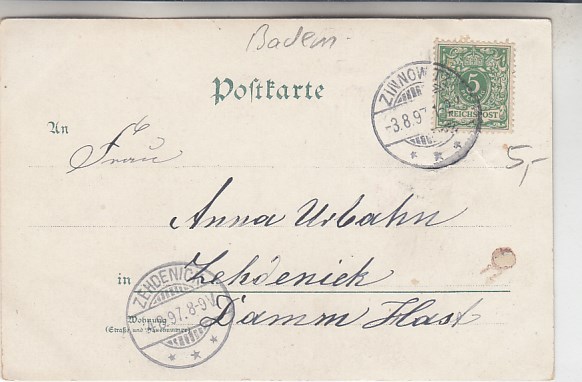 Badem
Postkarte
5
REICHSPOST
ZINNOW
-3.8.97
An
Frau
5,-
Anna Urbahn
in Zehdenick
ZEHDENICK
.97.8-9V.
Wohnung
(Straße und Hausnummer)
Damm Hast